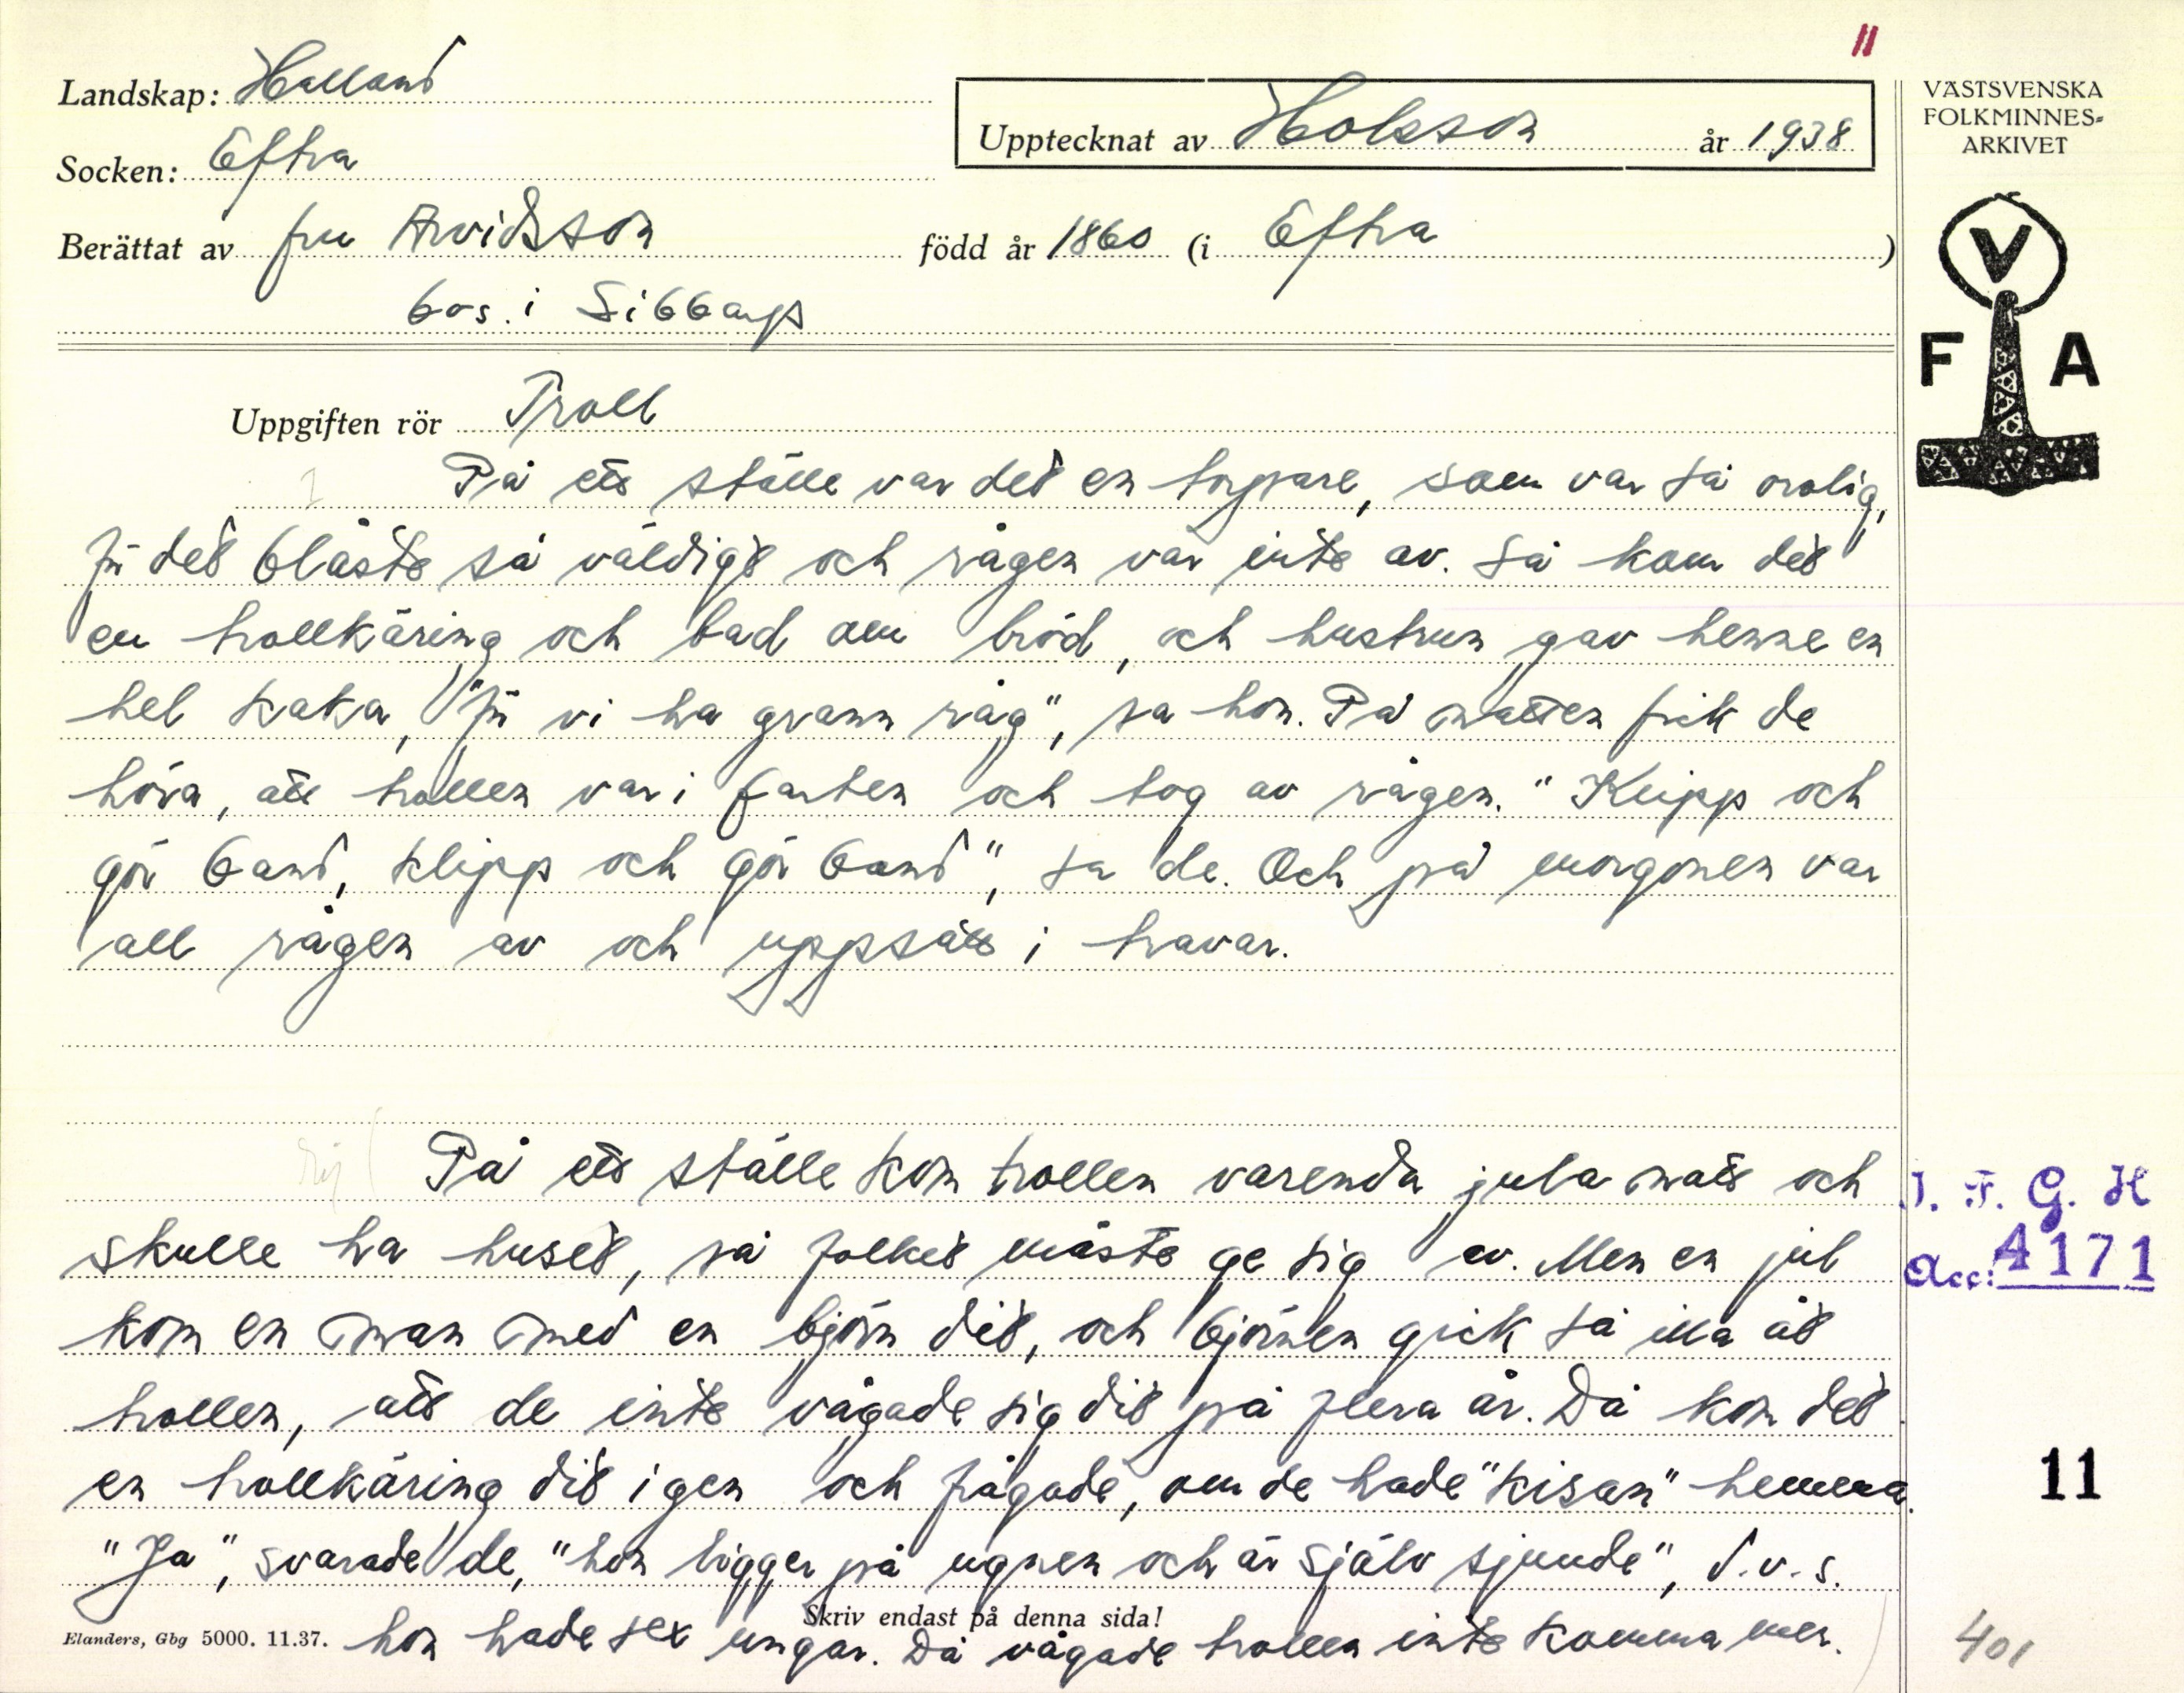 11
Landskap: Halland
Socken: Eftra
Upptecknat av Holsson år 1938
Berättat av fru Arvidsson född år 1860 (i Eftra )
bos. i Sibbarp
VÄSTSVENSKA
FOLKMINNES-
ARKIVET
V
F A
Uppgiften rör Troll
1 På ett ställe var det en torpare, som var så orolig,
för det blåste så väldigt och rågen var inte av. Så kom det
en trollkäring och bad om bröd, och hustrun gav henne en
hel kaka, "för vi ha grann råg", sa hon. På natten fick de
höra, att trollen var i farten och tog av rågen. "Klipp och
gör band, klipp och gör band", sa de. Och på morgonen var
all rågen av och uppsatt i travar.
På ett ställe kom trollen varenda jula natt och
skulle ha huset, så folket måste ge sig av. Men en jul
kom en man med en björn dit, och björnen gick så illa åt
trollen, att de inte vågade sig dit på flera år. Då kom det
en trollkäring dit igen och frågade, om de hade "kisan" hemma.
"Ja", svarade de, "hon ligger på ugnen och är själv sjunde", d.v.s.
hon hade sex ungar. Då vågade trollen inte komma mer.
Skriv endast på denna sida!
Elanders, Gbg 5000. 11.37.
I. F. G. H
Acc: 4171
11
401